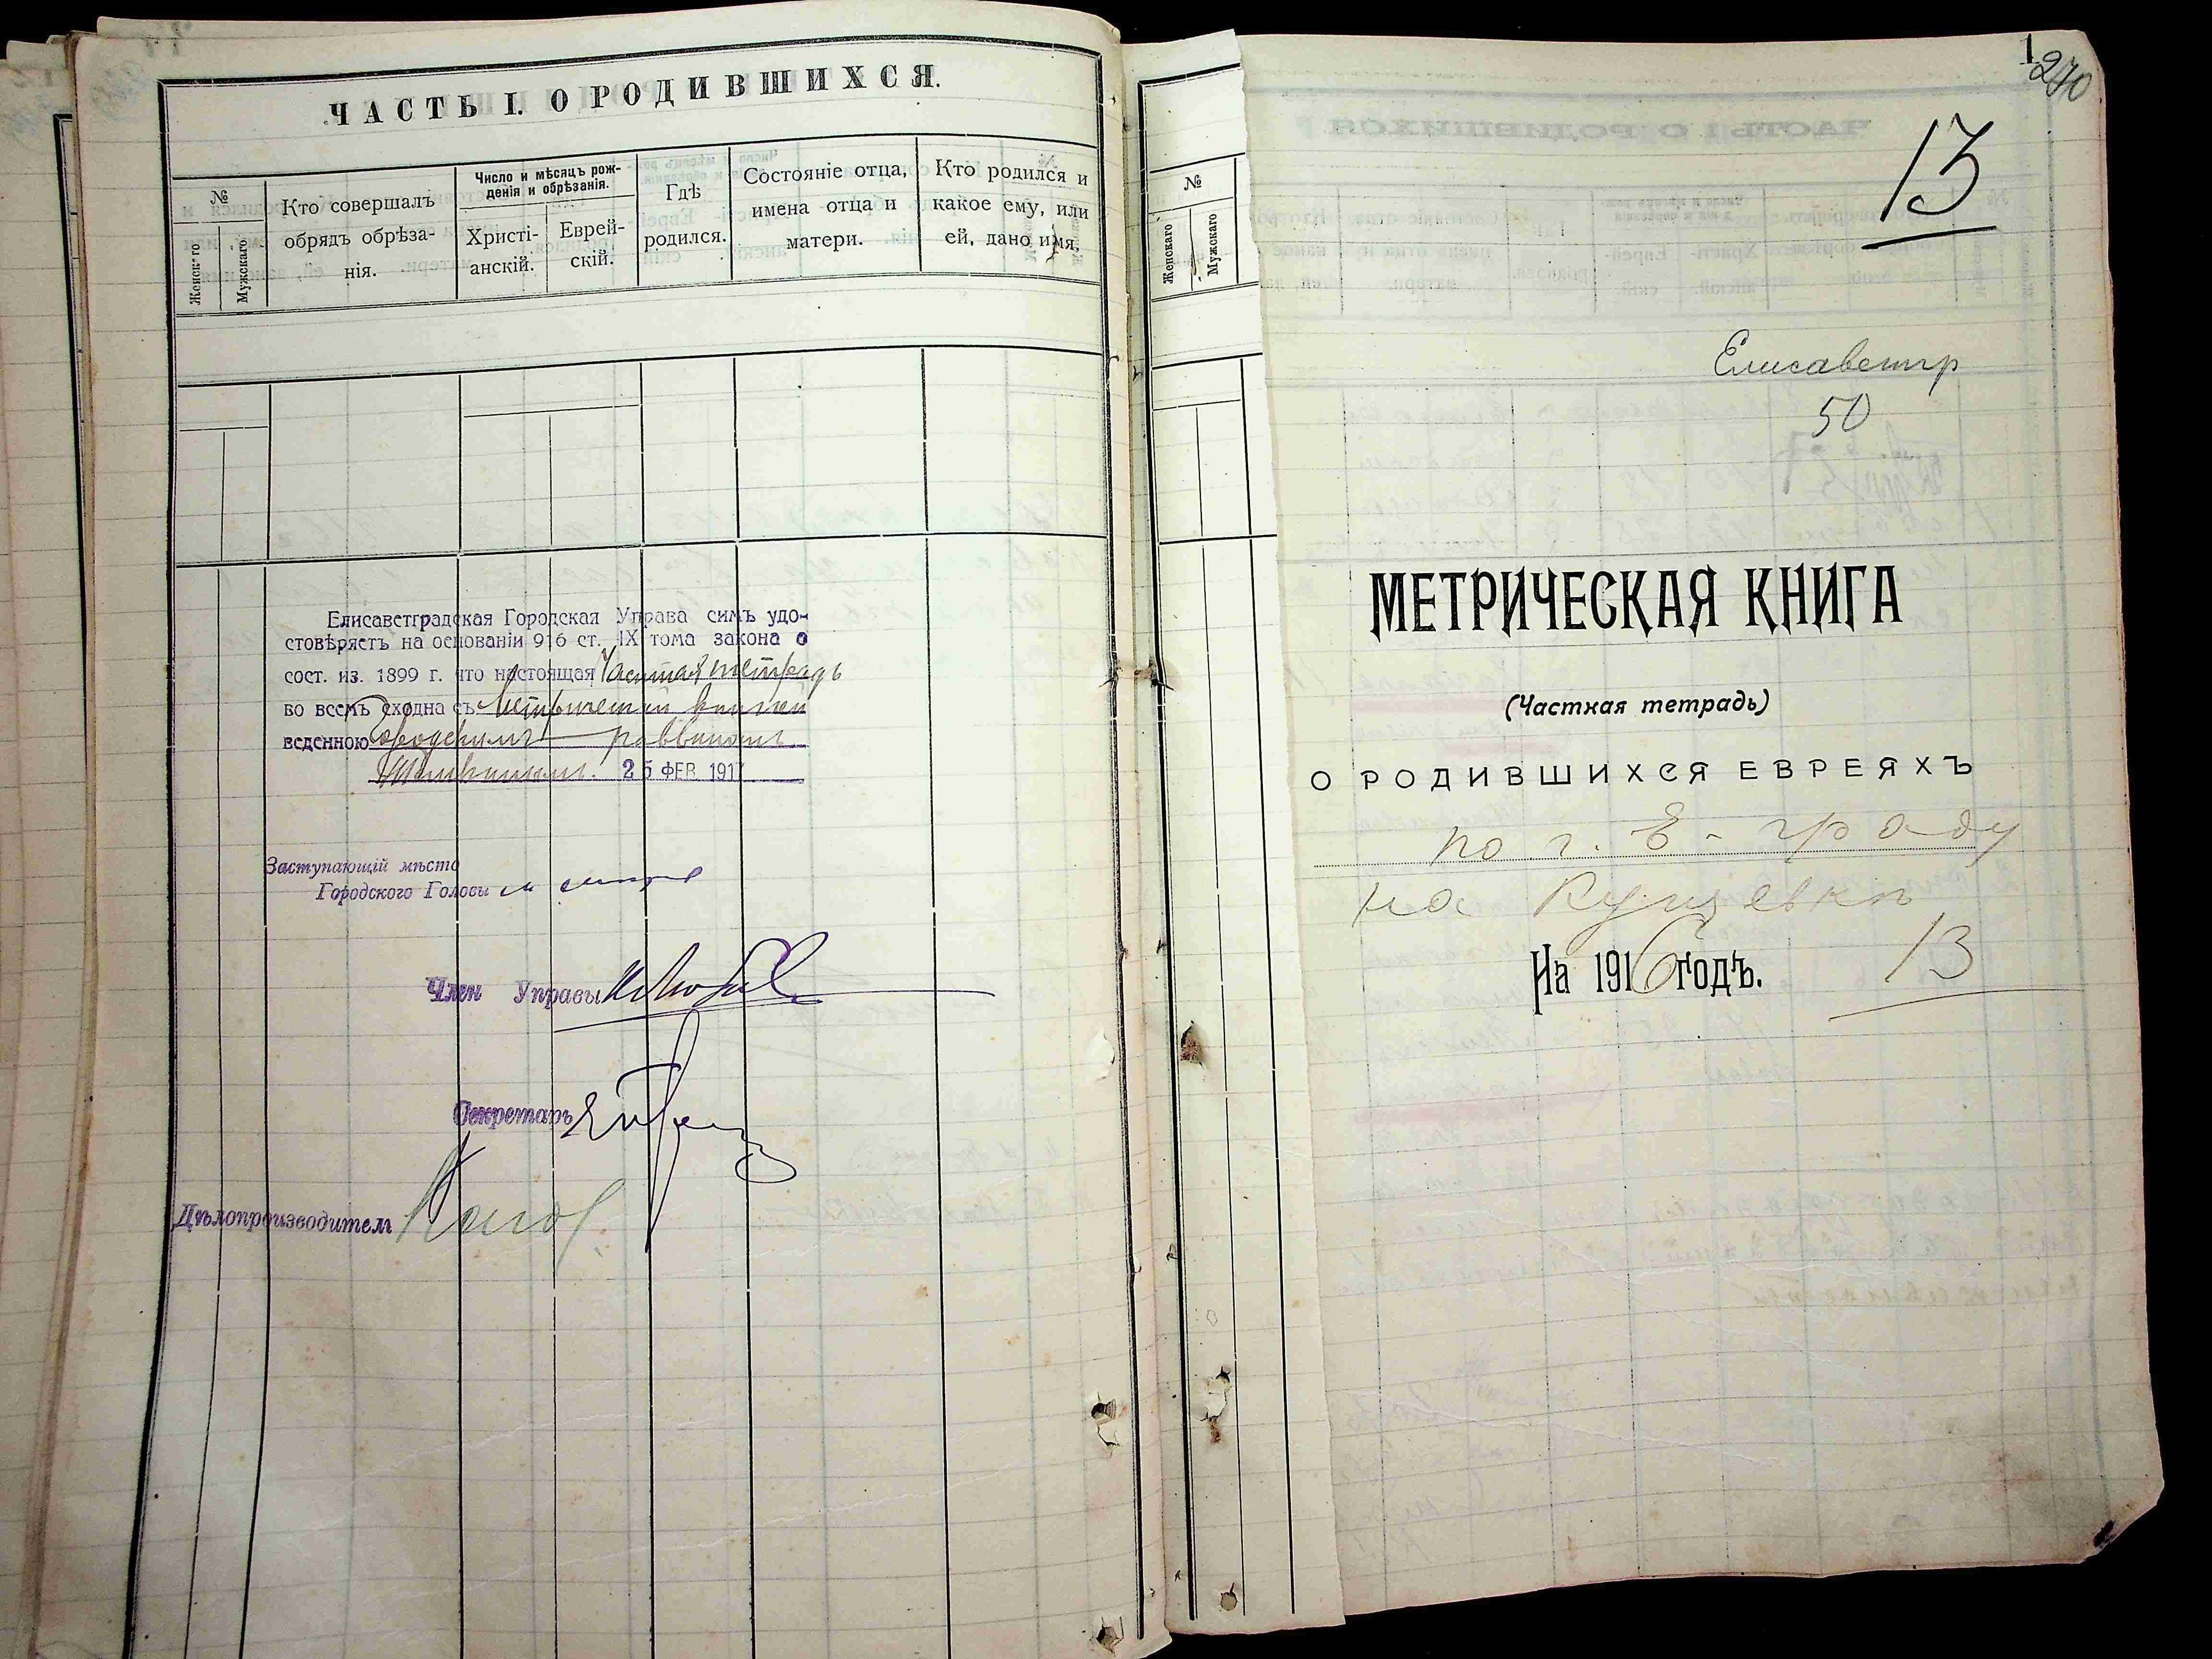 ЧАСТЬ I. О РОДИВШИХСЯ.
№
Женскаго
Мужскаго
Кто совершалъ
обрядъ обрѣза-
нія.
Число и мѣсяцъ рож-
денія и обрѣзанія.
Христі-
анскій.
Еврей-
скій.
Гдѣ
родился.
Состояніе отца,
имена отца и
матери.
Кто родился и
какое ему, или
ей, дано имя.
Елисаветградская Городская Управа симъ удо-
стовѣряетъ на основаніи 916 ст. IX тома закона о
сост. из. 1899 г. что настоящая Частная тетрадь
во всемъ сходна съ Метрической книгой
веденною Городскимъ раввиномъ
25 ФЕВ 1917
Заступающій мѣсто
Городского Головы
Член Управы
Секретарь
Дѣлопроизводитель
№
Женскаго
Мужскаго
1
240
13
Елисаветгр
50
МЕТРИЧЕСКАЯ КНИГА
(Частная тетрадь)
О РОДИВШИХСЯ ЕВРЕЯХЪ
по г. Е-граду
на Кущевкѣ
На 1916 годъ.
13